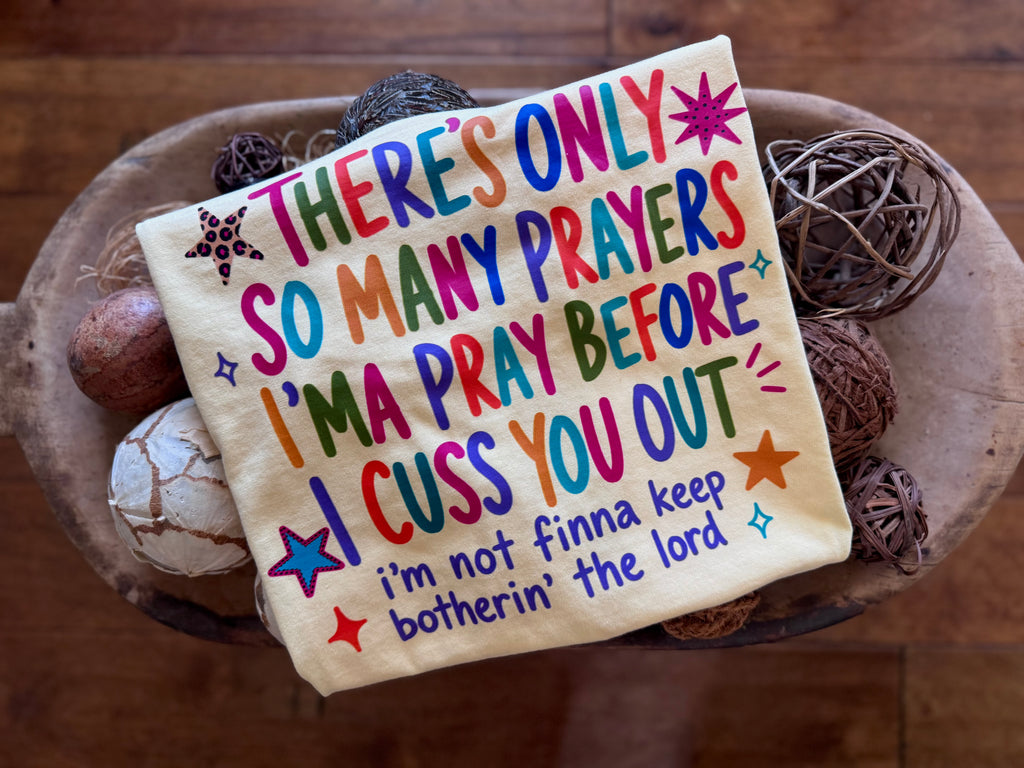 THERE'S ONLY
SO MANY PRAYERS
I'MA PRAY BEFORE
I CUSS YOU OUT
i'm not finna keep
botherin' the lord